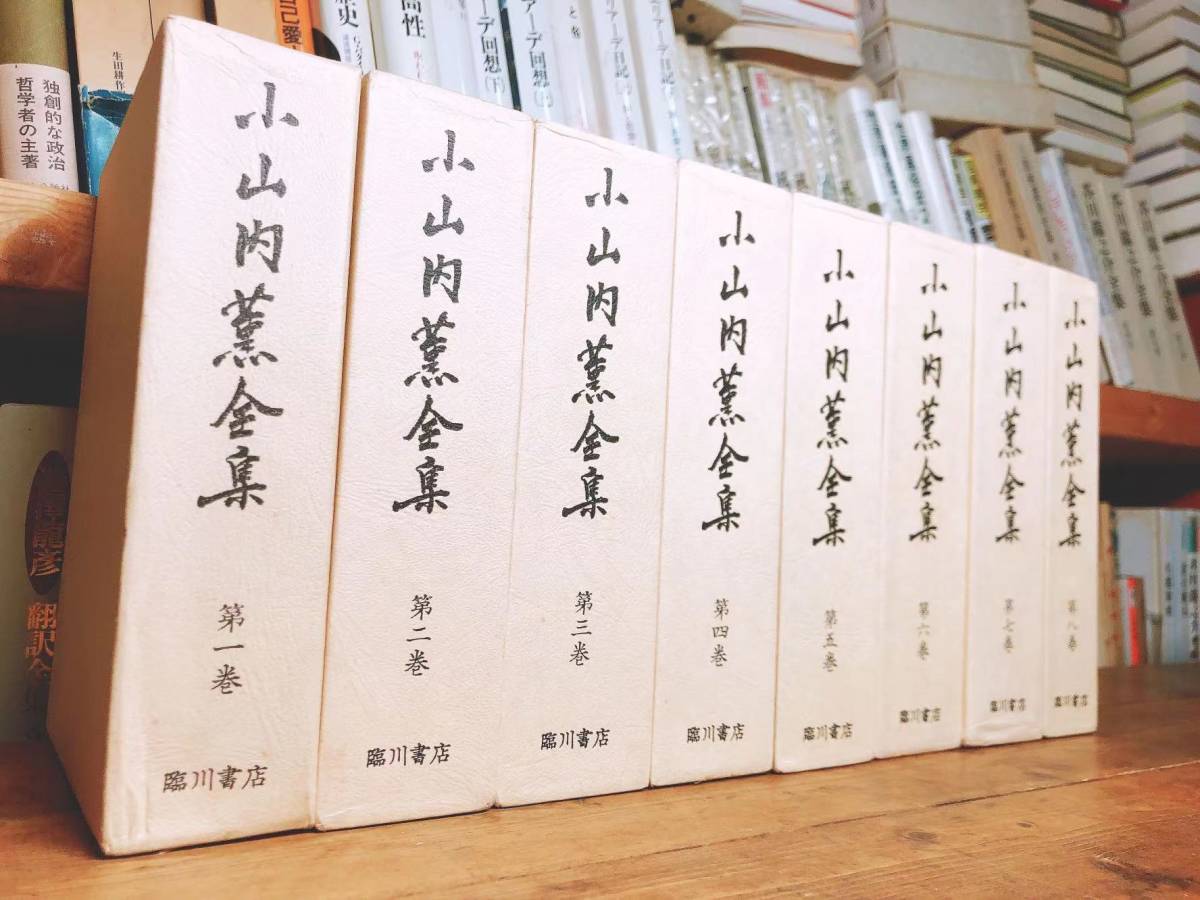 小山内薫全集
第一巻
臨川書店
小山内薫全集
第二巻
臨川書店
小山内薫全集
第三巻
臨川書店
小山内薫全集
第四巻
臨川書店
小山内薫全集
第五巻
臨川書店
小山内薫全集
第六巻
臨川書店
小山内薫全集
第七巻
臨川書店
小山内薫全集
第八巻
臨川書店
独創的な政治
哲学者の主著
生田耕作
自己愛
歴史
高性
アーデ回想(下)
アーデ回想
アーデ日記
龍彦
翻訳全